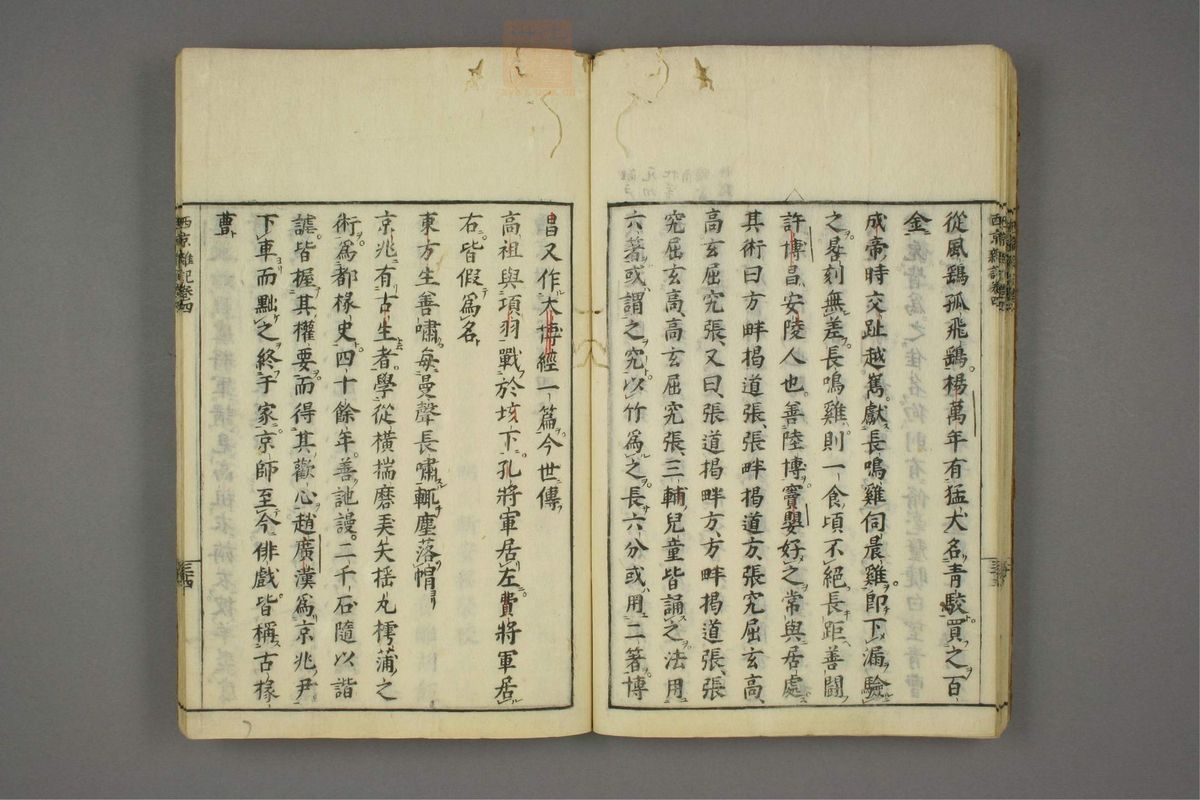 從風鷂孤飛鷂楊萬年有猛犬名青駮買之百
金
成帝時交趾越嶲獻長鳴雞伺晨雞即下漏驗
之晷刻無差長鳴雞則一食頃不絕長距善鬪
許博昌安陵人也善陸博竇嬰好之常與居處
其術曰方畔揭道張張畔揭道方張究屈玄高
高玄屈究張又曰張道揭畔方方畔揭道張張
究屈玄高高玄屈究張三輔兒童皆誦之法用
六箸或謂之究以竹爲之長六分或用二箸博
昌又作大博經一篇今世傳
高祖與項羽戰於垓下孔將軍居左費將軍居
右皆假爲名
東方生善嘯每曼聲長嘯輒塵落帽
京兆有古生者學從橫揣磨弄矢揺丸樗蒲之
術爲都掾史四十餘年善訑謾二千石隨以諧
謔皆握其權要而得其歡心趙廣漢爲京兆尹
下車而黜之終于家京師至今俳戲皆稱古掾
曹
西京雜記卷四